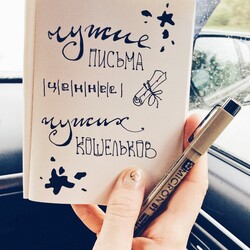 чужие
ПИСЬМА
ЦЕННЕЕ
чужих
КОШЕЛЬКОВ
MICRON